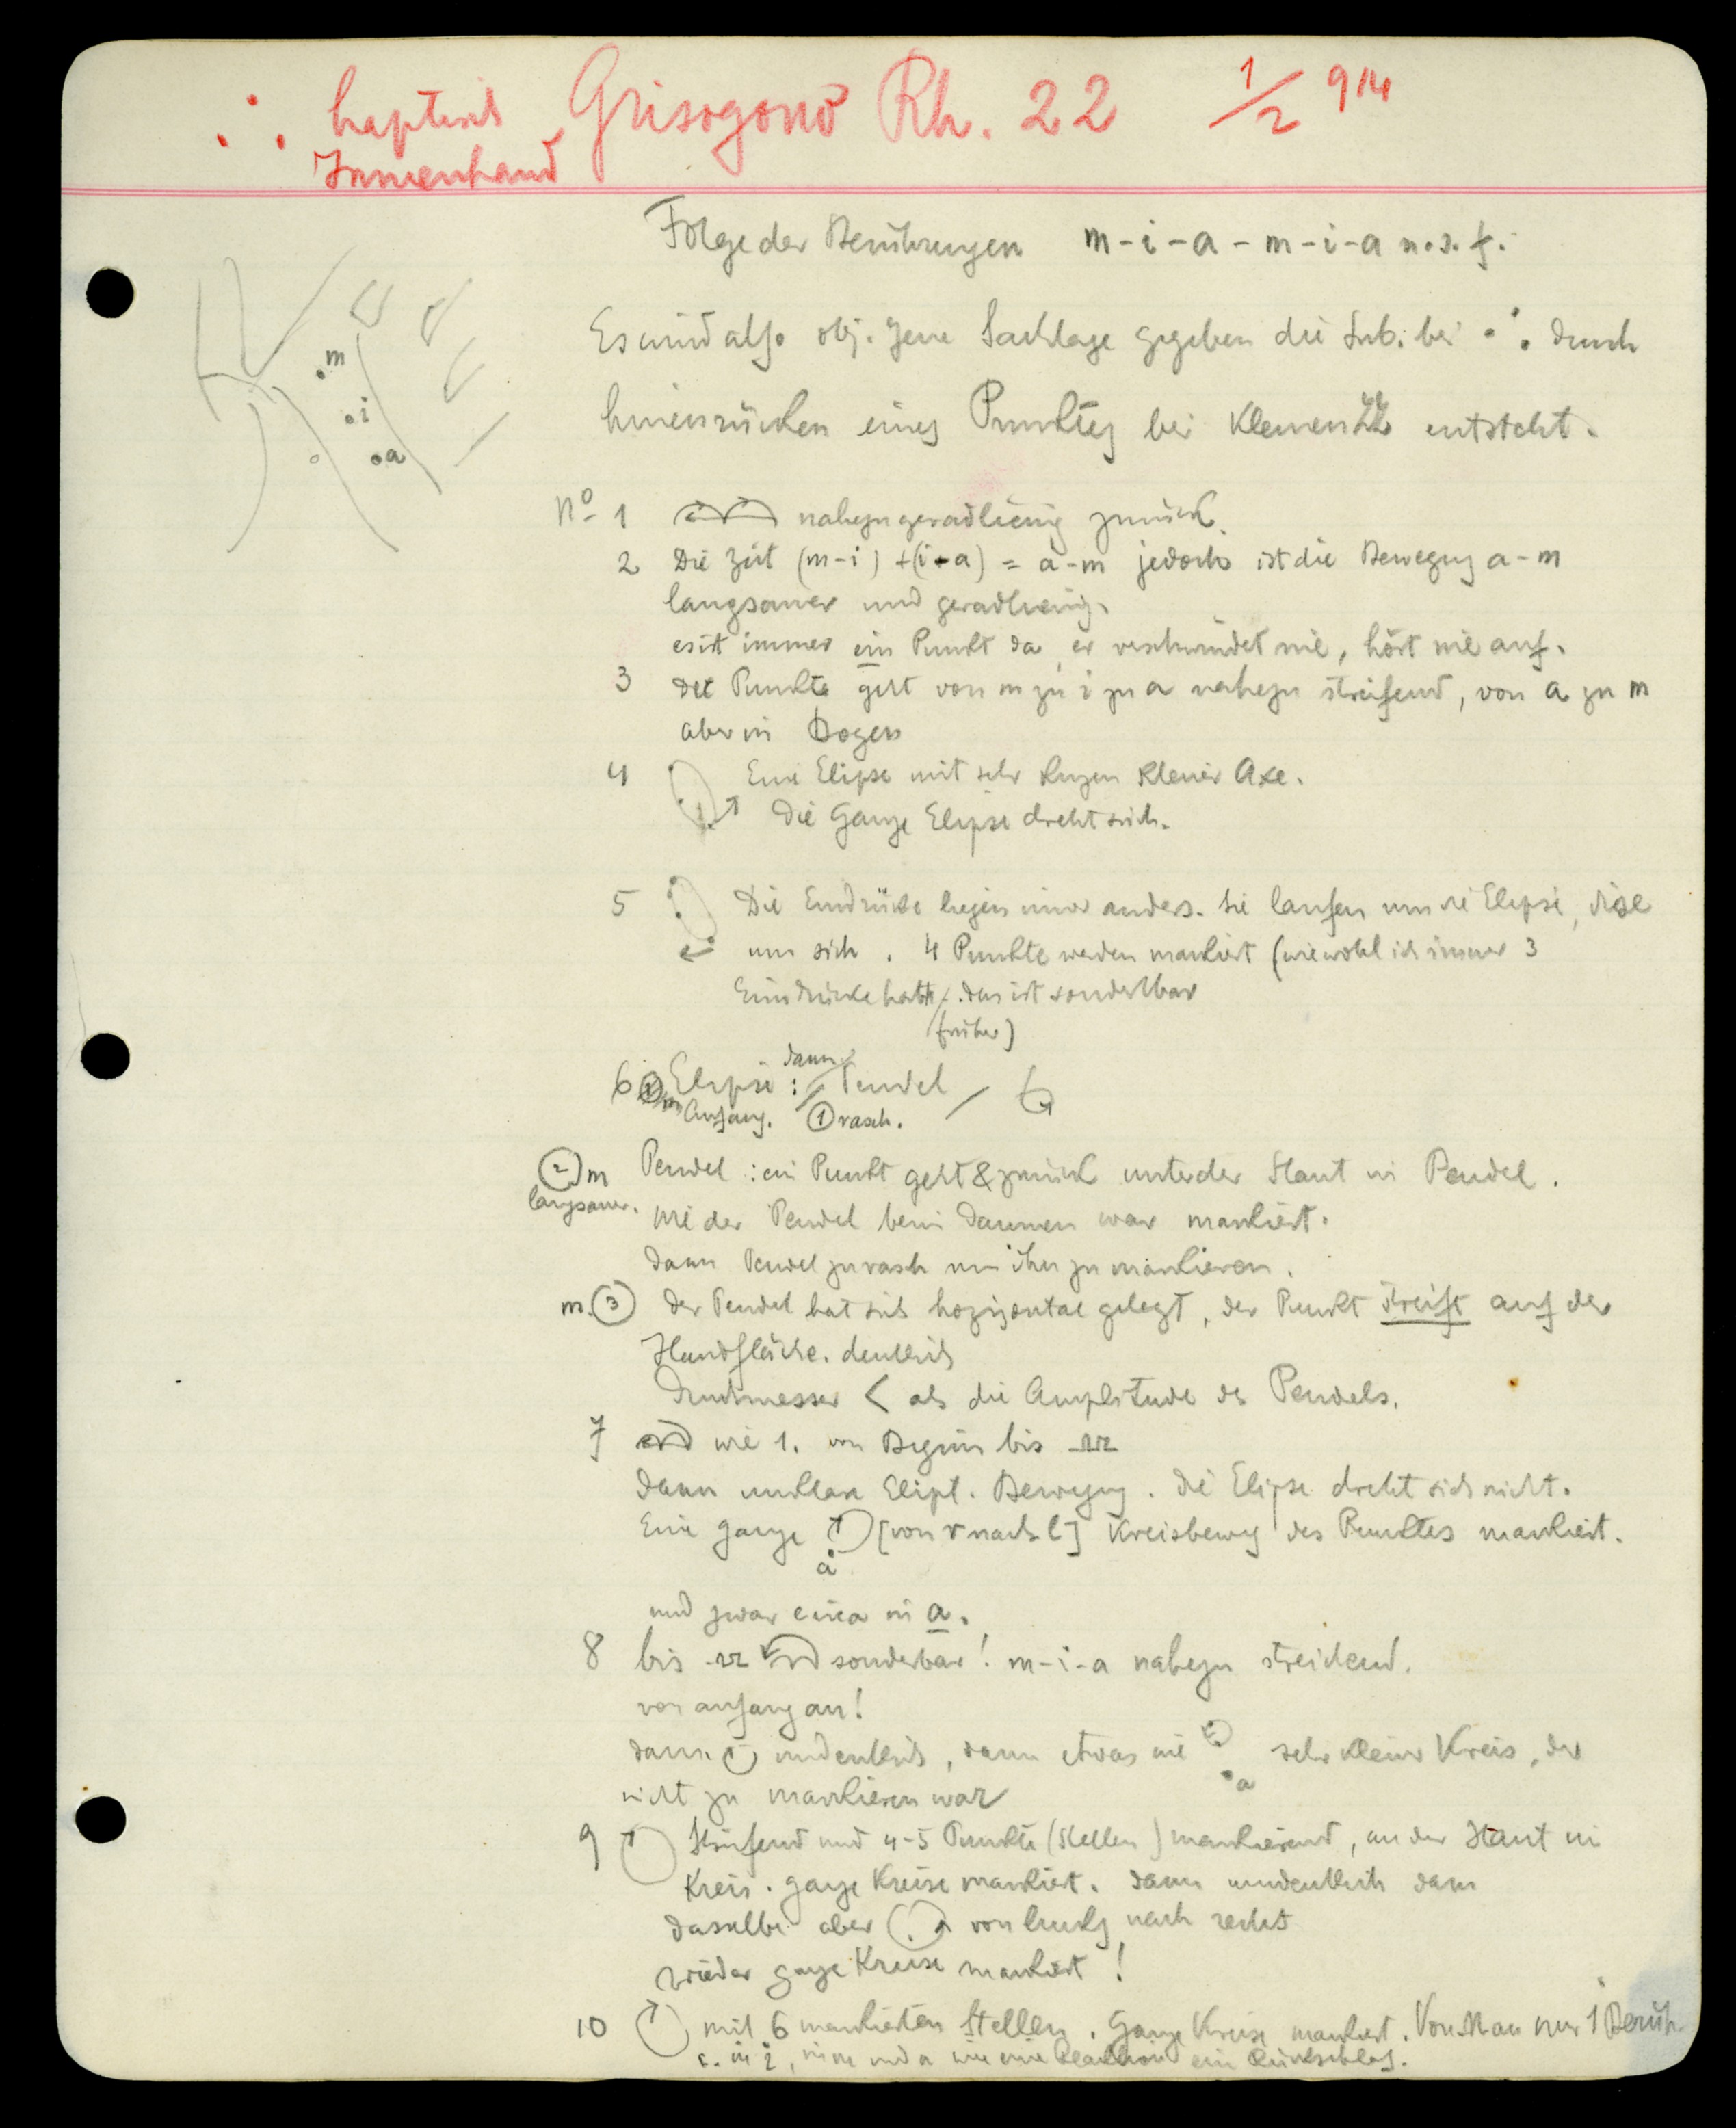 haptisch Grisogono Rh. 22 1/2 914
Innenhand
Folge der Berührungen m-i-a-m-i-a u.s.f.
m
i
a
Es wird also obj. jene Sachlage gegeben die Sub. bei durch
eines Punktes bei entsteht.
No 1 nahezu geradlinig zurück.
2 Die Zeit (m-i)+(i-a) = a-m jedoch ist die Bewegung a-m
langsamer und geradlinig.
es ist immer ein Punkt da, er verschwindet nie, hört nie auf.
3 Der Punkt geht von m zu i zu a nahezu streifend, von a zu m
aber in Bogen
4 Eine Elipse mit sehr kurzer kleiner Axe.
Die Ganze Elipse dreht sich.
5 Die Eindrücke liegen immer anders. Sie laufen um die Elipse, diese
um sich. 4 Punkte werden markiert (wiewohl ich immer 3
Eindrücke hatte. das ist sonderbar
früher)
6 Elipse: dann Pendel
Anfang. ① rasch.
② m Pendel: ein Punkt geht & zurück unter der Haut in Pendel.
langsamer. Wie der Pendel beim Daumen war markiert.
dann Pendel zu rasch um ihn zu markieren.
m. ③ der Pendel hat sich horizontal gelegt, der Punkt streift auf der
Handfläche. deutlich
Durchmesser < als die Amplitude des Pendels.
7 wie 1. von Beginn bis
dann unklare Elipt. Bewegung. die Elipse dreht sich nicht.
Eine ganze [von r nach l] Kreisbeweg des Punktes markiert.
a
und zwar circa in a.
8 bis sonderbar! m-i-a nahezu streichend.
von anfang an!
dann undeutlich, dann etwas wie sehr kleiner Kreis, der
a
nicht zu markieren war
9 Streifend und 4-5 Punkte (Stellen) markierend, an der Haut im
Kreis. ganze Kreise markiert. dann undeutlich dann
dasselbe aber von links nach rechts
wieder ganze Kreise markiert!
10 mit 6 markierten Stellen. Ganze Kreise markiert. Von an nur 1 Berüh.
c. in i, in m und a wie eine Reaktion ein Rückschlag.